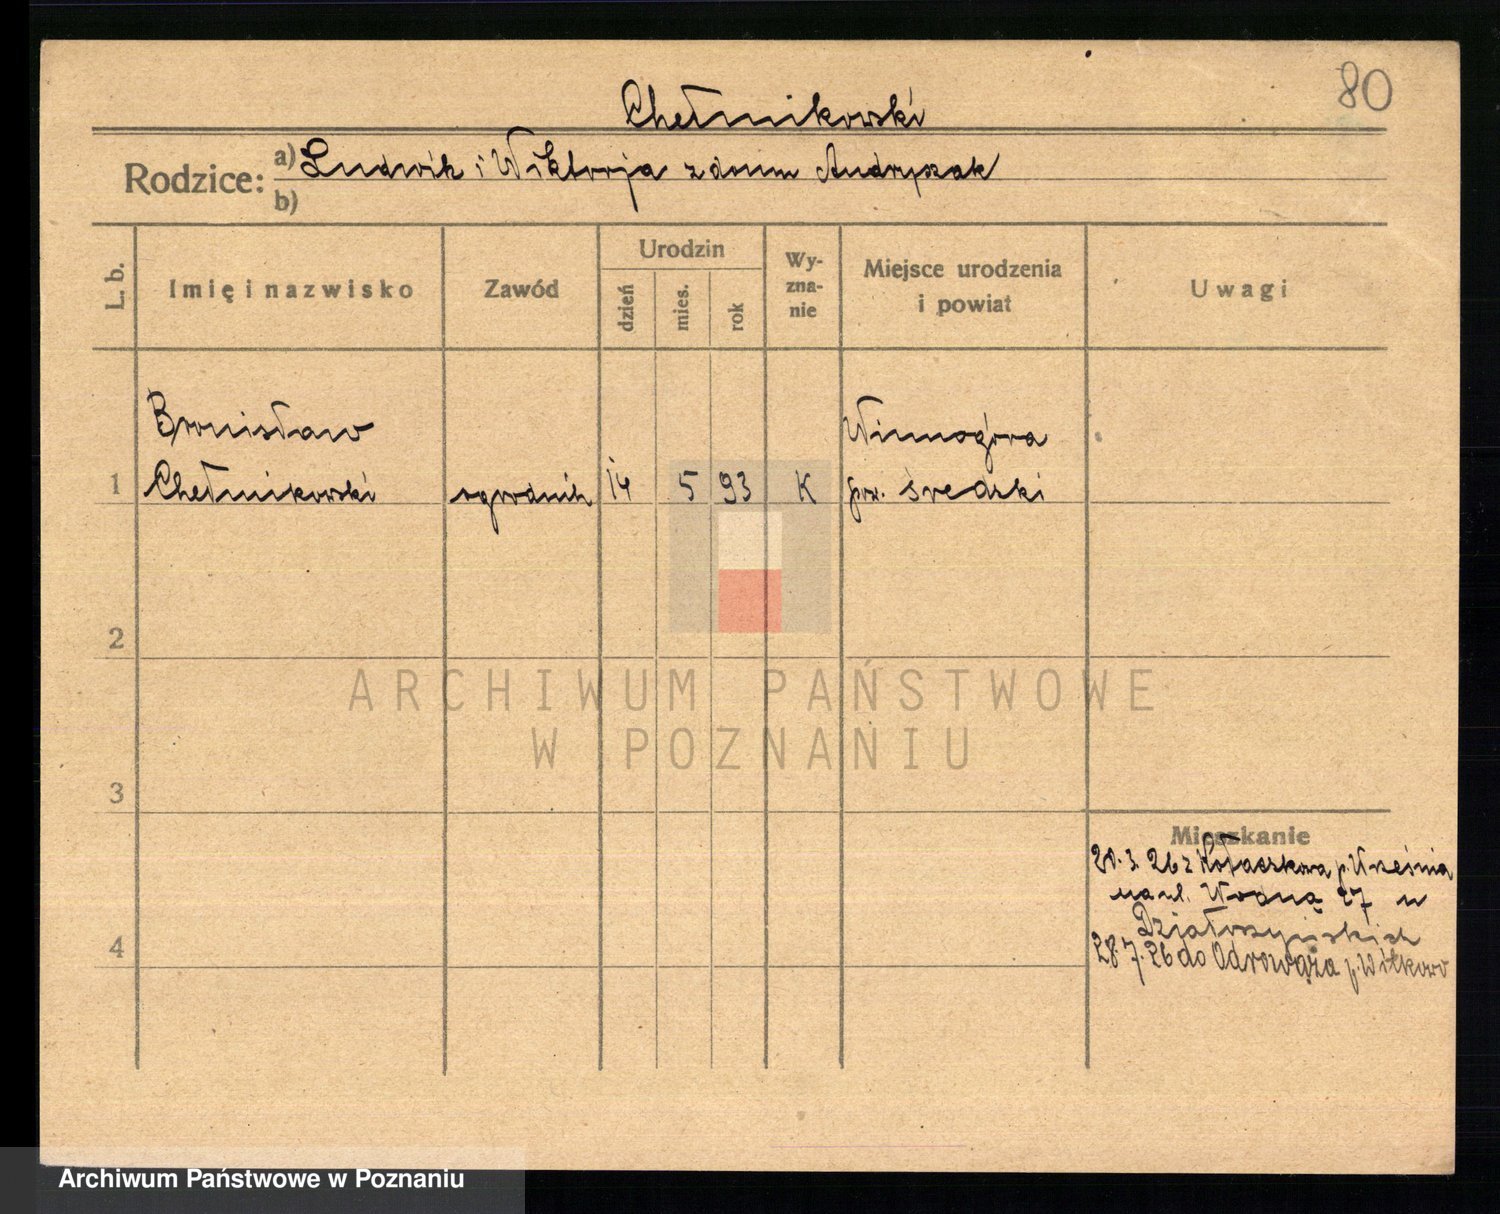 80
Chełmikowski
Rodzice: a) Ludwik i Wiktorja z domu Andryszak
b)
L. b.
Imię i nazwisko
Zawód
Urodzin
dzień
mies.
rok
Wy-
zna-
nie
Miejsce urodzenia
i powiat
Uwagi
Bronisław
Winnogóra
1 Chełmikowski ogrodnik 14 5 93 K pow. średzki
2
ARCHIWUM PAŃSTWOWE
W POZNANIU
3
Mieszkanie
20.3.26 z Kołaczkowa p. Września
na ul. Wodną 27 u
Działoszyńskich
4
28.7.26 do Odrowąża p. Witkowo
Archiwum Państwowe w Poznaniu